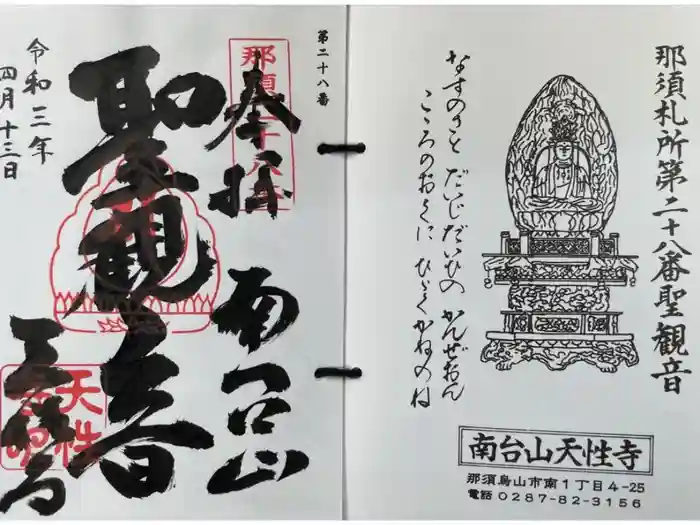 那須札所第二十八番聖観音
なすのさと だいじだいひの かんぜおん
こころのおくに ひゞくかねのね
南台山天性寺
那須烏山市南1丁目4-25
電話0287-82-3156
第二十八番
奉拝
南台山
聖観音
天性
令和三年
四月十三日